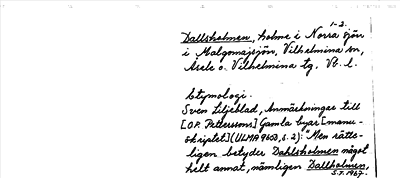 1-2.
Dallsholmen, holme i Norra sjön
i Malgomajsjön, Vilhelmina sn,
Åsele o. Vilhelmina tg. Vb. l.
Etymologi.
Sven Liljeblad, Anmärkningar till
[O.P. Petterssons] Gamla byar [manu-
skriptet] (ULMA 9650, s. 2): "Men rätte-
ligen betyder Dahlsholmen något
helt annat, nämligen Dallholmen,
S.T. 1967.